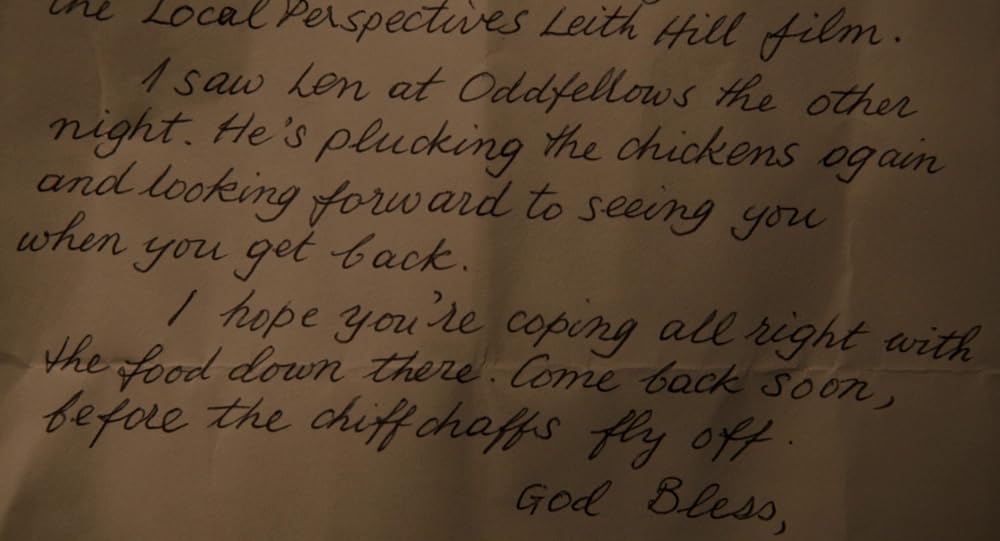 the Local Perspectives Leith Hill film.
I saw Len at Oddfellows the other
night. He's plucking the chickens again
and looking forward to seeing you
when you get back.
I hope you're coping all right with
the food down there. Come back soon,
before the chiffchaffs fly off.
God Bless,